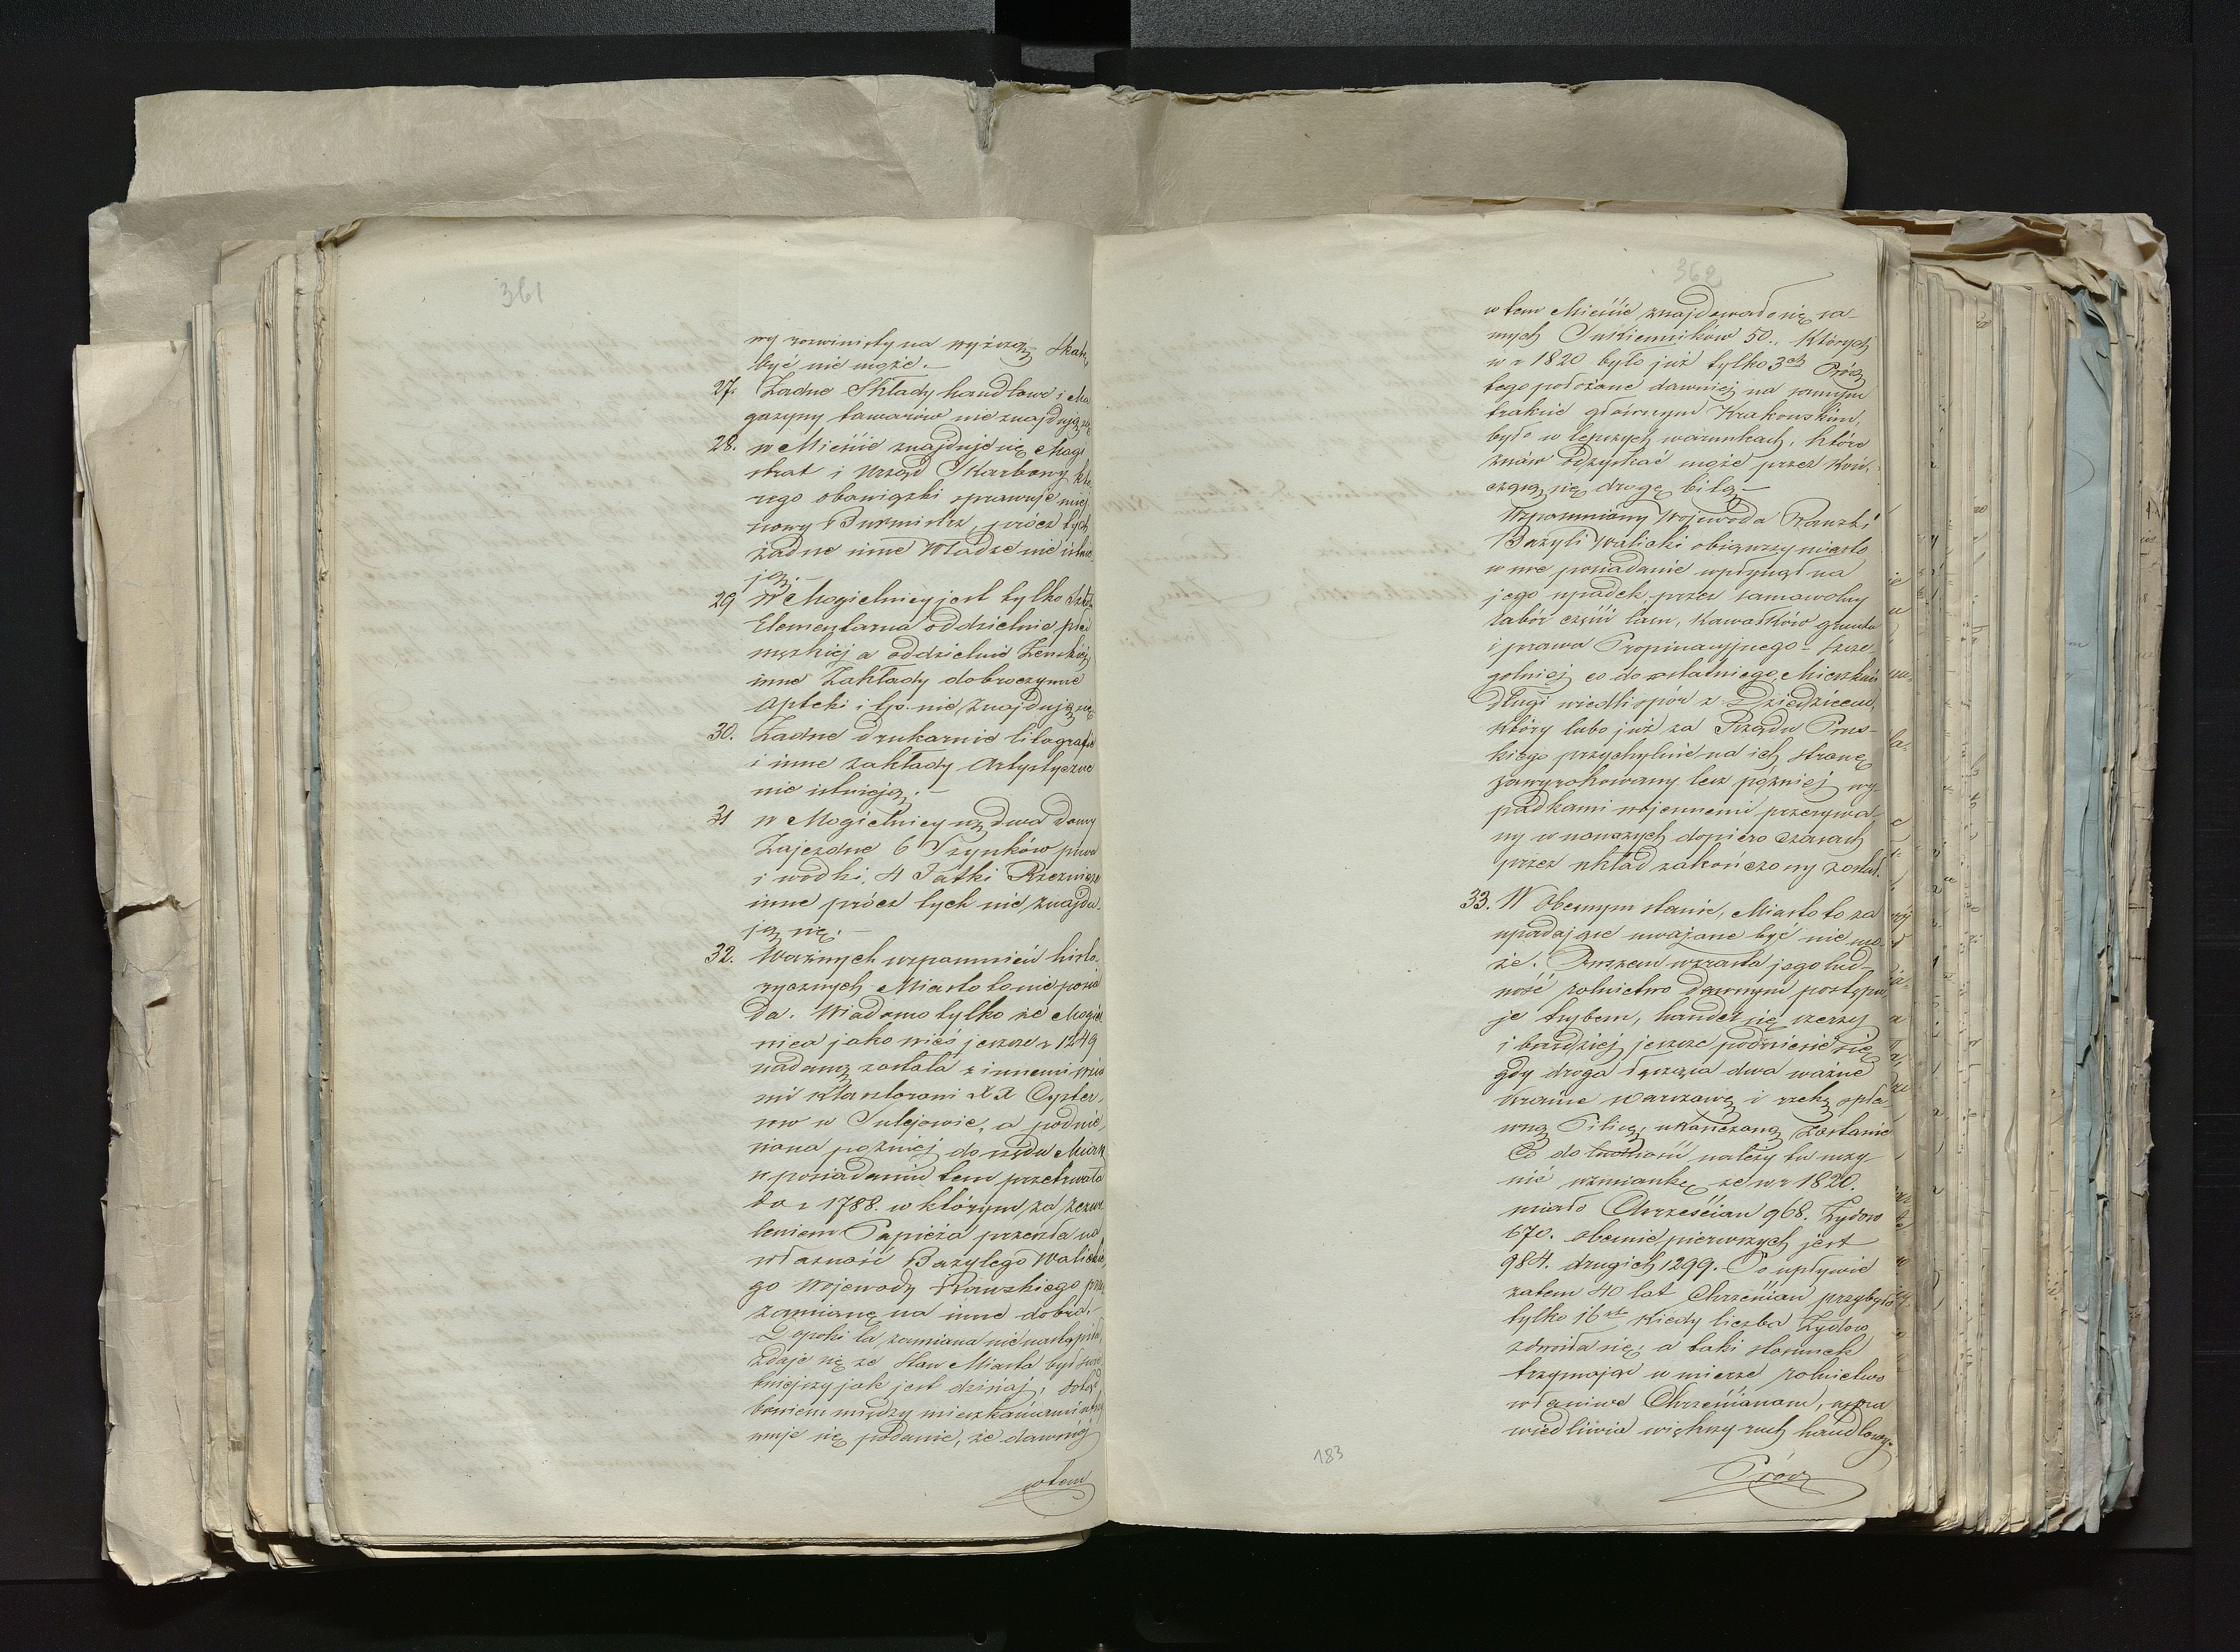 361
wy rozwinięty na wyższą skalę
być nie może.—
27. Żadne Składy handlowe i Ma
gazyny towarów nie znajdują się
28. w Mieście znajduje się Magi
strat i Urząd Skarbowy któ
rego obowiązki sprawuje miej
scowy Burmistrz, prócz tych
żadne inne Władze nie istnie
ją.—
29 W Mogielnicy jest tylko Szkoła
Elementarna oddzielnie płci
męzkiej a oddzielnie Żeńskiej
inne Zakłady dobroczynne
Apteki i tp. nie znajdują się
30. Żadne drukarnie litografie
i inne zakłady Artystyczne
nie istnieją.—
31 w Mogielnicy są dwa domy
Zajezdne 6 Szynków piwa
i wodki, 4 Jatki Rzeznicze
inne prócz tych nie znajdu
ją się.—
32. Ważnych wspomnień histo
rycznych Miasto to nie posia
da. Wiadomo tylko że Mogiel
nica jako wieś jeszcze r 1249
nadaną została z innemi wsia
mi Klasztorowi XX Cyster
sów w Sulejowie, a podnie
siona poźniej do rzędu Miast
w posiadaniu tem przetrwała
do r 1788. w którym za zezwo
leniem Papieża przeszła na
własność Bazylego Walickie
go Wojewody Rawskiego przez
zamianę na inne dobra.
Z epoki ta zamiana nie nastąpiła
zdaje się że stan Miasta był świe
tniejszy jak jest dzisiaj, dotąd
bowiem między mieszkańcami utrzy
muje się podanie, że dawniéj
w tem
362
w tem Mieście znajdowało się sa-
mych Sukienników 50., których
w r 1820 było już tylko 3ch Prócz
tego położone dawniej na samym
trakcie głównym Krakowskim,
było w lepszych warunkach, które
znów odzyskać może przez koń-
czącą się drogę bitą.—
Wspomniony Wojewoda Rawski
Bazyli Walicki objąwszy miasto
w swe posiadanie wpłynął na
jego upadek, przez samowolny
zabór części łasu, Kawałków gruntu
i prawa Propinacyjnego— szcze
golniej co do ostatniego, Mieszkańcy
długi wiedli spór z Dziedzicem,
który lubo już za Rządu Prus-
kiego przychylnie na ich stronę
zawyrokowany lecz poźniej wy-
padkami wojennemi przerywa-
ny w naszych dopiero czasach
przez układ zakończony został.
33. W Obecnym stanie, Miasto to za
upadające uważane być nie mo-
że. Owszem wzrasta jego lud-
ność rolnictwo dawnym postępu
je trybem, handel się szerzy
i bardziej jeszcze podniesie się
gdy droga łącząca dwa ważne
krańce Warszawę i rzekę spła-
wną Pilicę, ukończoną zostanie
Co do ludności należy tu uczy-
nić wzmiankę że w r 1820.
miało Chrześcian 968. Żydów
670. obecnie pierwszych jest
984. drugich 1299. Po upływie
zatem 40 lat Chrześcian przybyło
tylko 16st kiedy liczba Żydów
zdwoiła się; a taki stosunek
trzymając w mierze rolnictwo
właściwe Chrześcianom, uspra
wiedliwia większy ruch handlowy.
Prócz
183